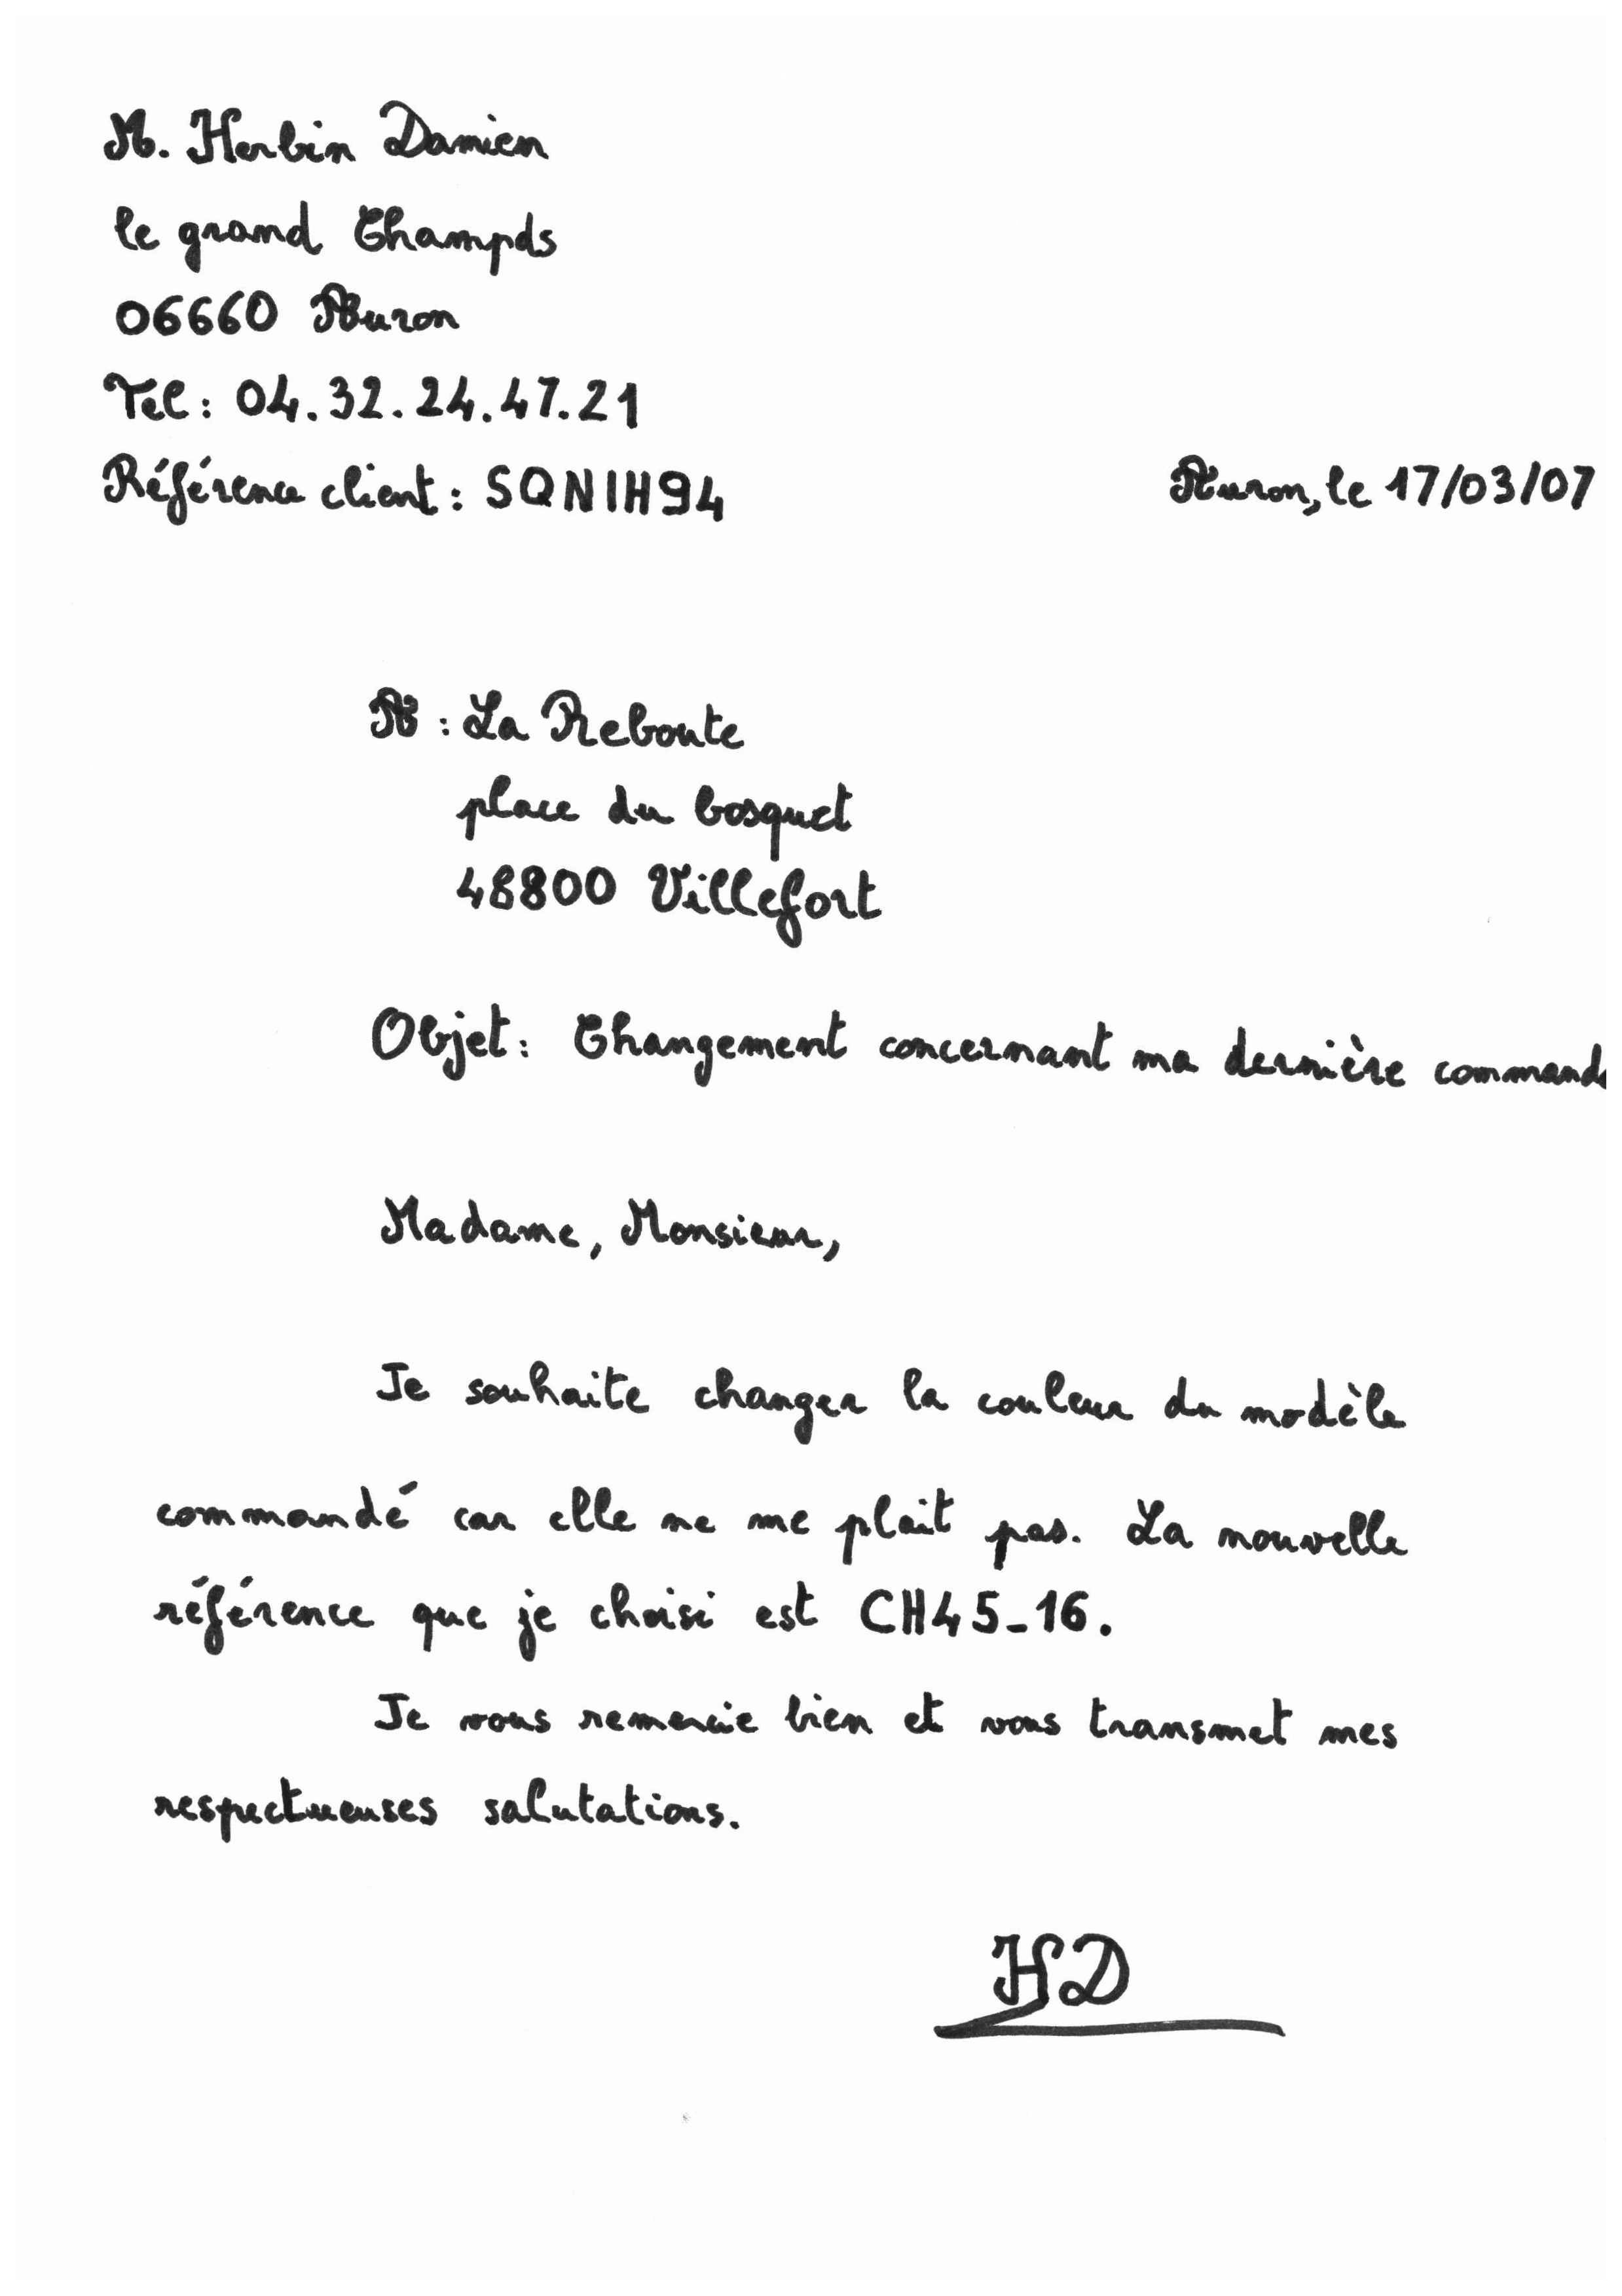 M. Herbin Damien
le grand Champds
06660 Auron
Tel : 04.32.24.47.21
Référence client : SQNIH94
Auron, le 17/03/07
A : La Reboute
place du bosquet
48800 Villefort
Objet : Changement concernant ma dernière commande
Madame, Monsieur,
Je souhaite changer la couleur du modèle
commandé car elle ne me plait pas. La nouvelle
référence que je choisi est CH45-16.
Je vous remercie bien et vous transmet mes
respectueuses salutations.
HD